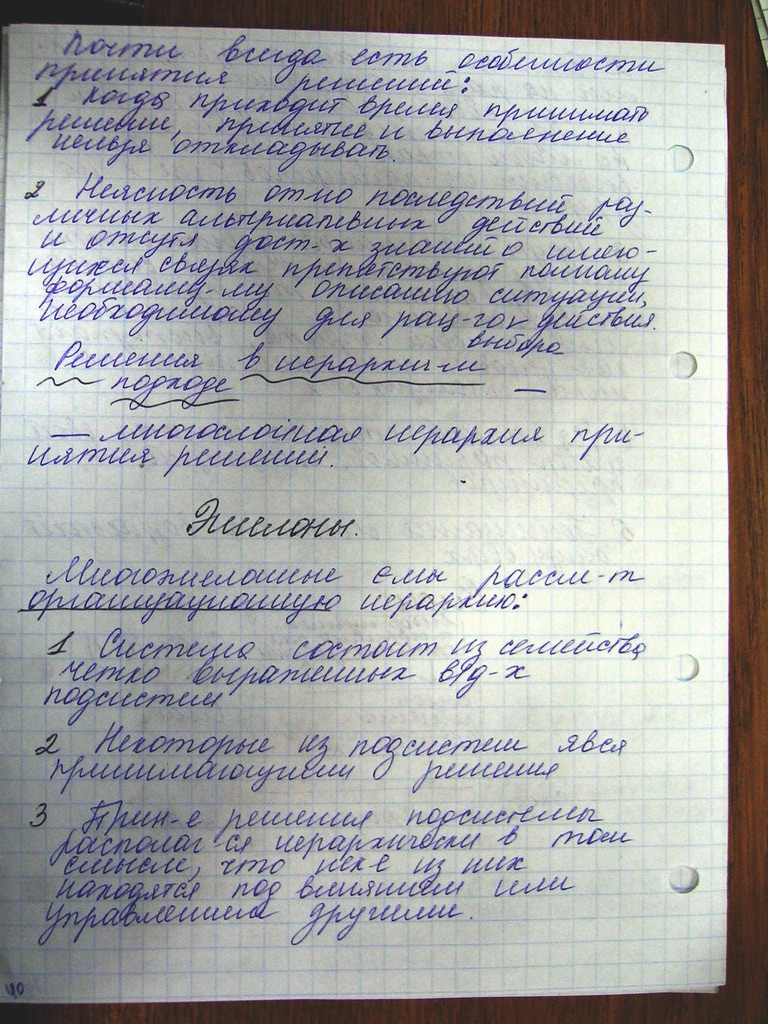 Почти всегда есть особенности
принятия решений:
1 Когда приходит время принимать
решение, принятие и выполнение
нельзя откладывать.
2 Неясность отно последствий раз-
личных альтернативных действий
и отсутя дост-х знаний о имею-
щихся связях препятствуют полному
формальн-му описанию ситуации,
необходимому для рац-го действия.
выбора
Решения в иерархич-м
подходе —
— многослойная иерархия при-
нятия решений.
Эшелоны.
Многоэшелонные с-мы рассм-т
организационную иерархию:
1 Система состоит из семейства
четко выраженных вз/д-х
подсистем
2 Некоторые из подсистем явся
принимающими решения
3 Прин-е решения подсистемы
располаг ся иерархически в том
смысле, что нек-е из них
находятся под влиянием или
управлением другими.
40